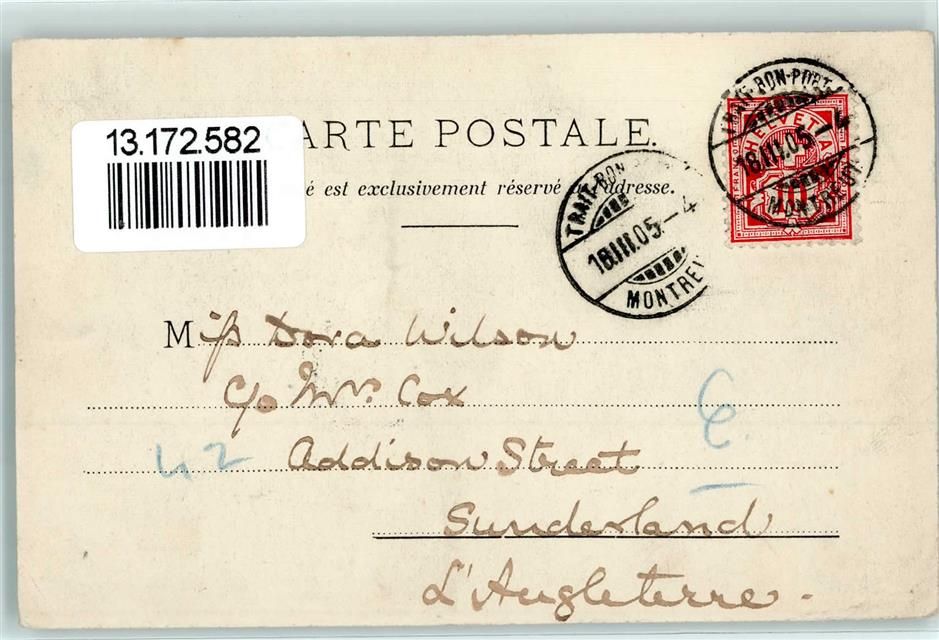 13.172.582
ARTE POSTALE.
é est exclusivement réservé à l'adresse.
TRAIT-BON-PORT
18.III.05.-4
MONTREUX
HELVETIA
FRANCO
10
TRAIT-BON
18.III.05.-4
MONTREU
Miss Dora Wilson
C/o Mrs. Cox
42 Addison Street
Sunderland
L'Angleterre.